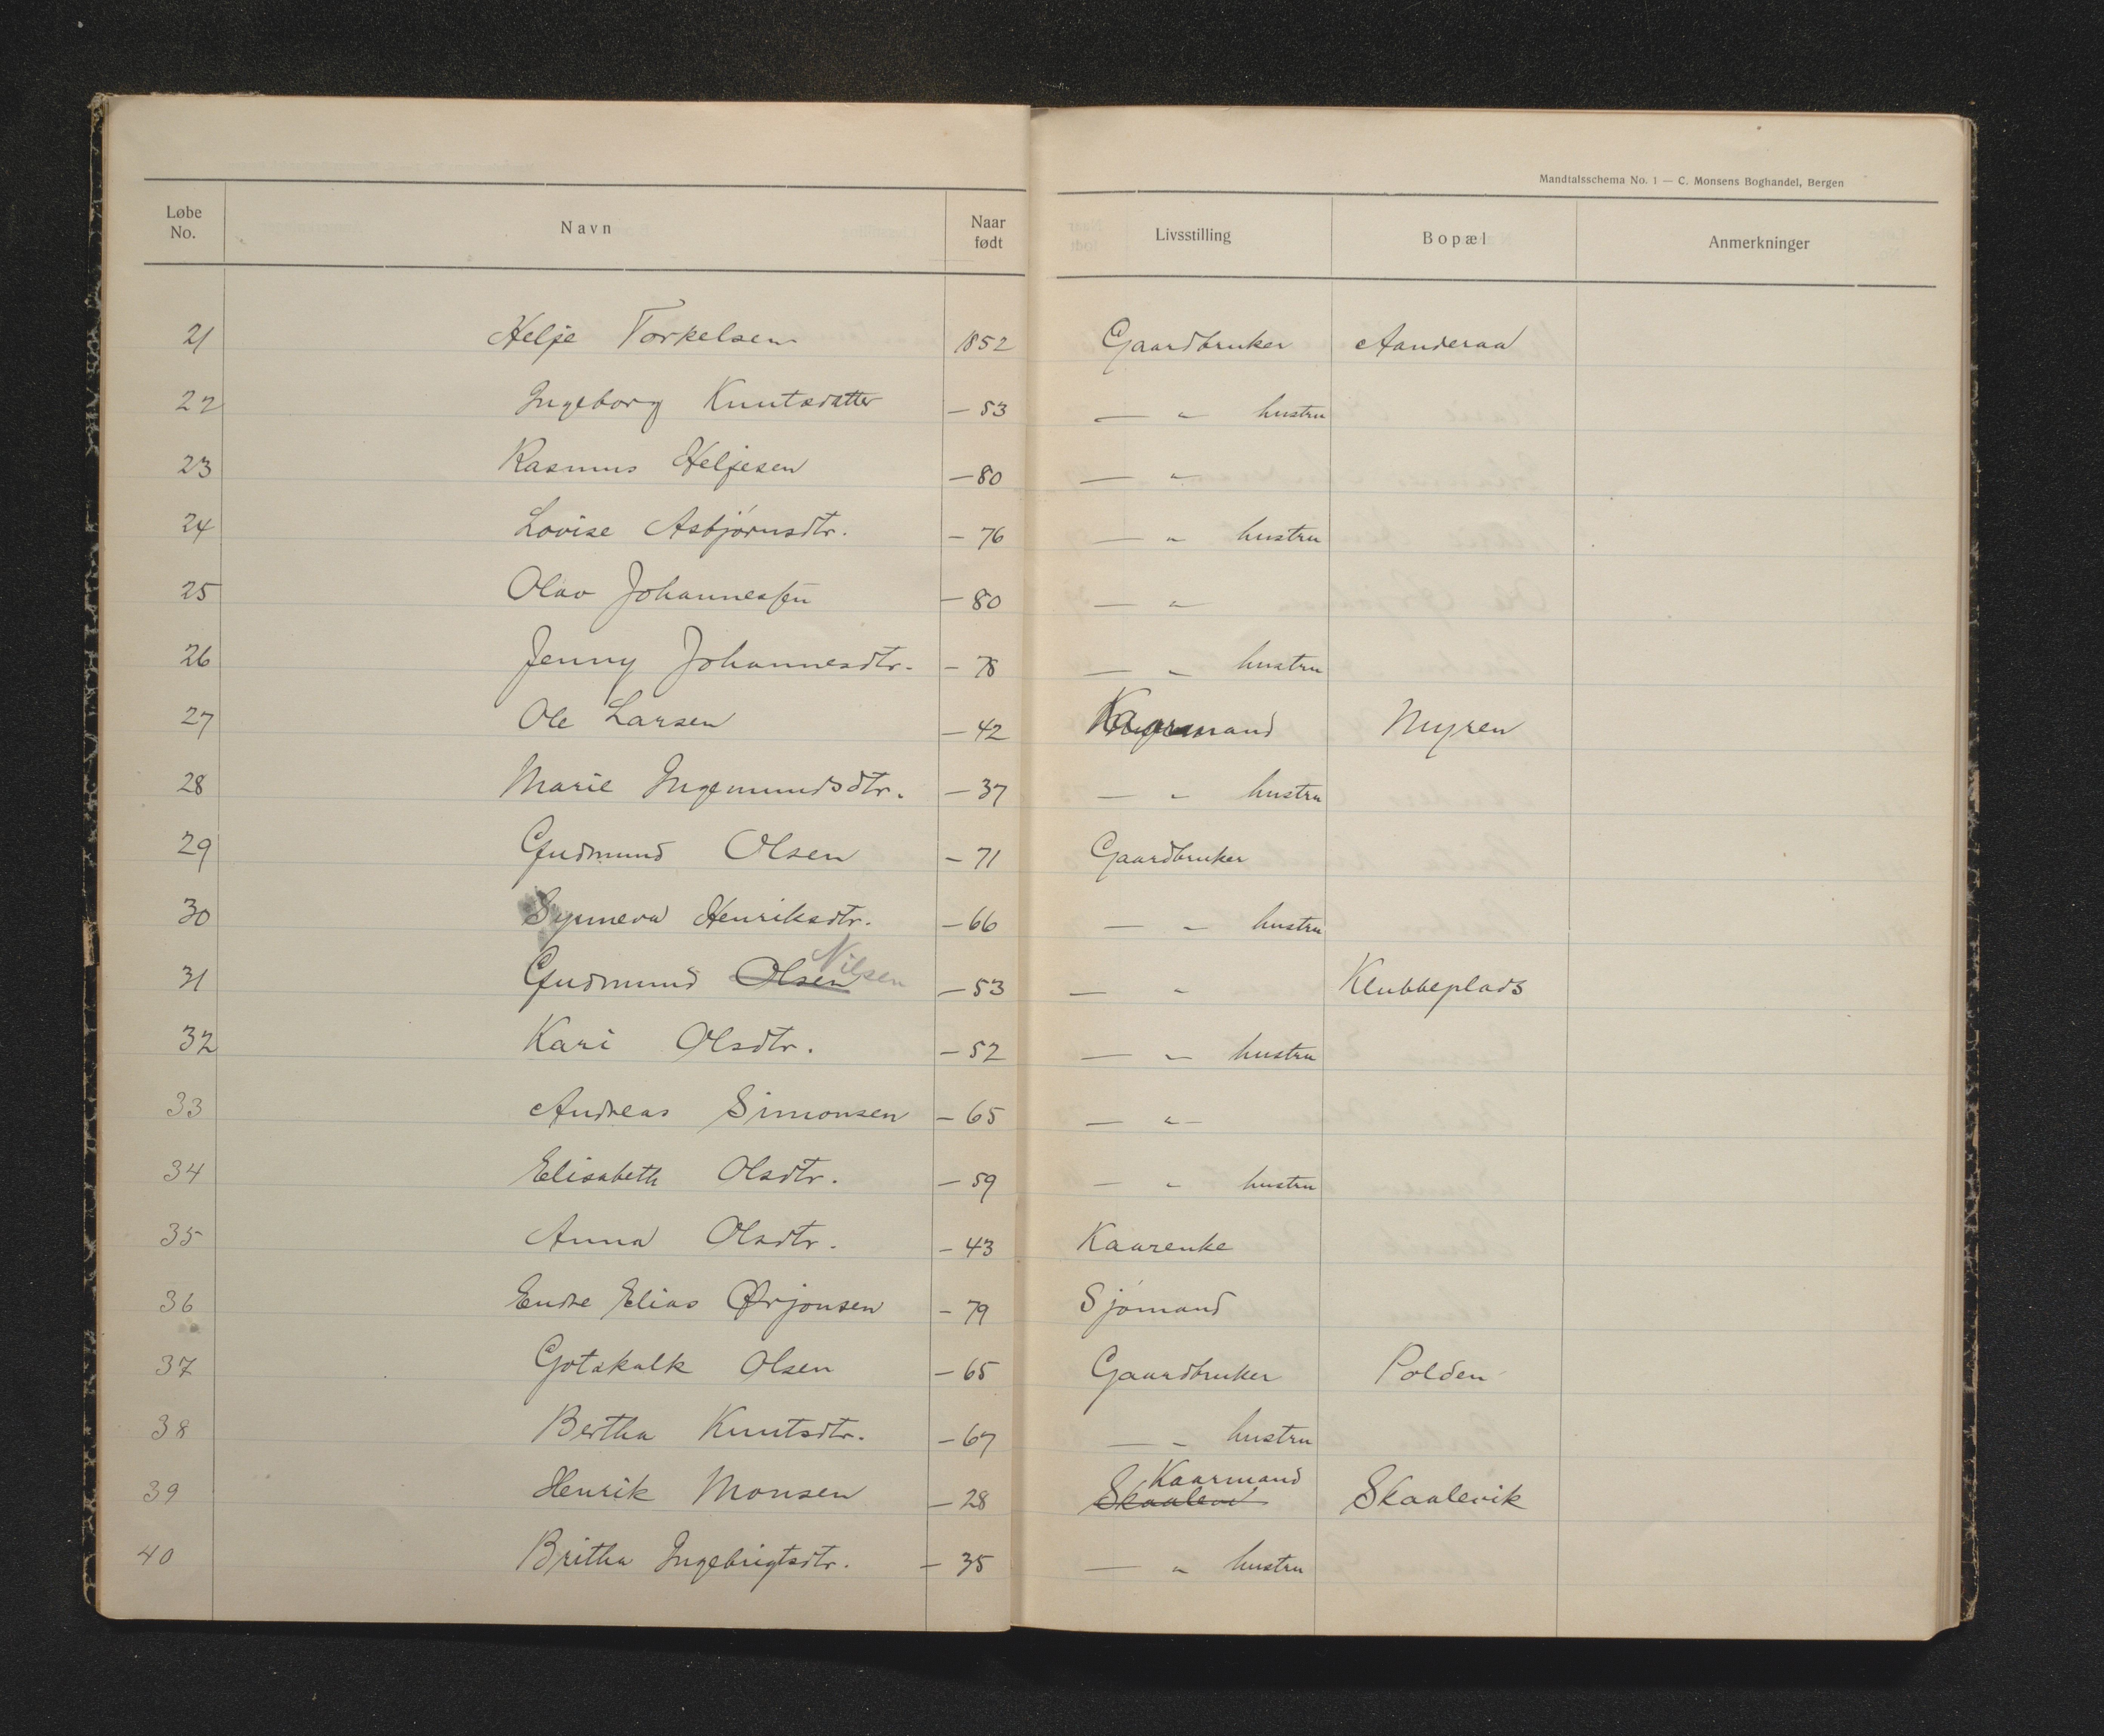 Mandtalsschema No. 1 — C. Monsens Boghandel, Bergen
Løbe No. Navn Naar født Livsstilling Bopæl Anmerkninger
21 Helje Torkelsen 1852 Gaardbruker Aanderaa
22 Ingeborg Knutsdatter — 53 — " — hustru
23 Rasmus Heljesen — 80 — " —
24 Lovise Asbjørnsdtr. — 76 — " hustru
25 Olav Johannessen — 80 — " —
26 Jenny Johannesdtr. — 78 — " hustru
27 Ole Larsen — 42 Kaarmand Myren
28 Marie Ingemundsdtr. — 37 — " hustru
29 Gudmund Olsen — 71 Gaardbruker
30 Synneva Henriksdtr. — 66 — " hustru
31 Gudmund Olsen Nilsen — 53 — " Klubbeplads
32 Kari Olsdtr. — 52 — " — hustru
33 Andreas Simonsen — 65 — " —
34 Elisabeth Olsdtr. — 59 — " hustru
35 Anna Olsdtr. — 43 Kaarenke
36 Endre Elias Ørjonsen — 79 Sjömand
37 Gotskalk Olsen — 65 Gaardbruker Polden
38 Bertha Knutsdtr. — 67 — " hustru
39 Henrik Monsen — 28 Skaalevi Kaarmand Skaalevik
40 Britha Ingebrigtsdtr. — 35 — " hustru